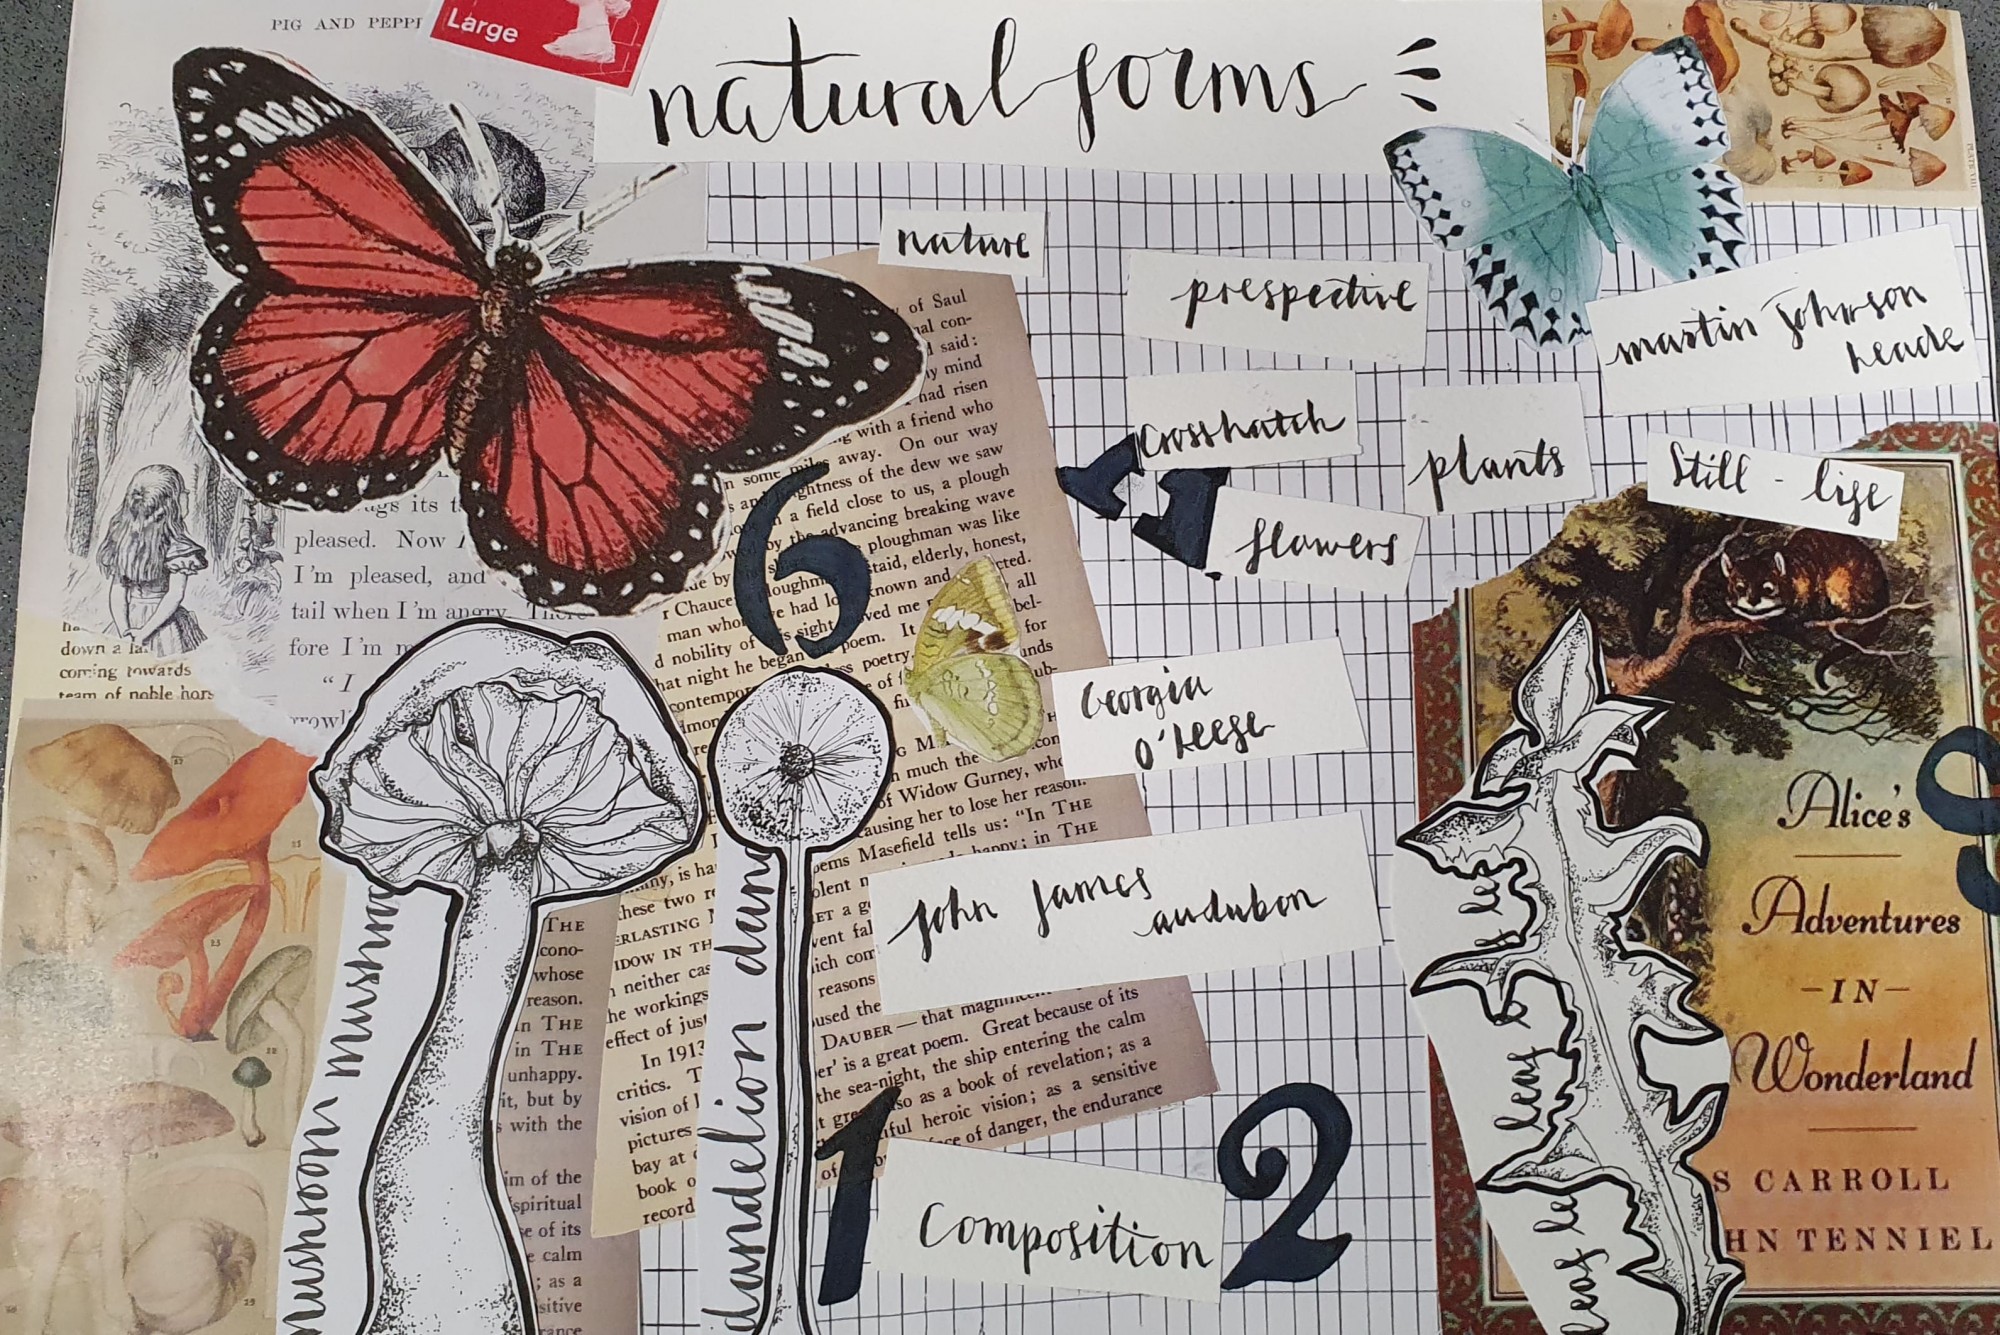 PIG AND PEPP
Large
natural forms
nature
prespective
martin Johnson
heade
crosshatch
plants
Still - life
flowers
6
pleased. Now I
I'm pleased, and
tail when I'm angry. There
fore I'm
"I
down a la
coming towards
team of noble hors
of Saul
al con-
said:
y mind
had risen
g with a friend who
some miles away. On our way
and brightness of the dew we saw
a field close to us, a plough
by the advancing breaking wave
ploughman was like
staid, elderly, honest,
known and
man who had lo ved me
nobility of his sight
hat night he began poem. It
ss poetry
contempor
Georgia
O'Keefe
much the
of Widow Gurney, who
ausing her to lose her reason.
oems Masefield tells us: "In THE
happy; in THE
John James
audubon
these two re
ERLASTING
IDOW IN TH
neither cas
he workings
effect of jus
In 1913
critics. T
vision of
pictures
bay at
book o
record
reasons
used the
DAUBER — that magnificent
er' is a great poem. Great because of its
the sea-night, the ship entering the calm
also as a book of revelation; as a
iful heroic vision; as a sensitive
ce of danger, the endurance
THE
cono-
whose
reason.
in THE
in THE
unhappy.
it, but by
s with the
im of the
spiritual
se of its
e calm
; as a
sitive
rance
mushroom mushroo
dandelion dand
1
Composition
2
9
leaf leaf le
Alice's
Adventures
- IN -
Wonderland
S CARROLL
HN TENNIEL